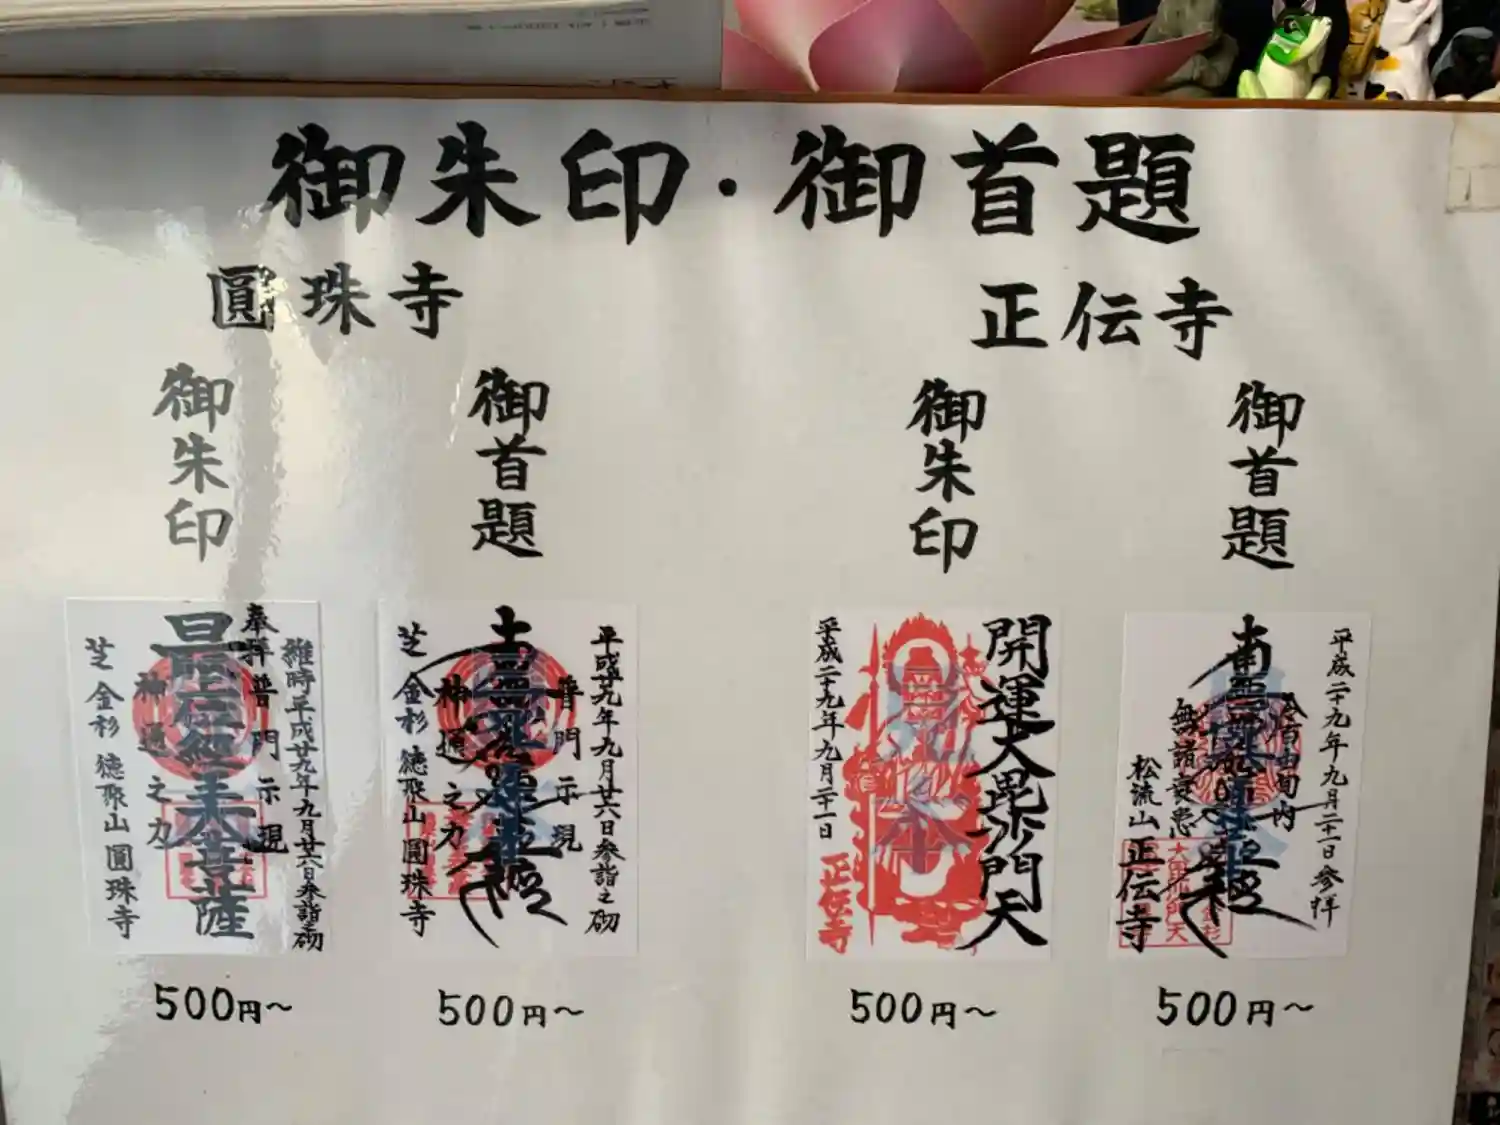 御朱印・御首題
圓珠寺
正伝寺
御朱印
御首題
御朱印
御首題
維時平成廿九年九月廿六日参詣之砌
奉拝
普門示現
最正位経王大菩薩
神通之力
芝金杉 徳聚山圓珠寺
平成廿九年九月廿六日参詣之砌
普門示現
神通之力
芝金杉 徳聚山圓珠寺
開運大毘沙門天
平成二十九年九月二十一日
正伝寺
平成二十九年九月二十一日参拝
無諸衰患
松流山正伝寺
500円〜
500円〜
500円〜
500円〜